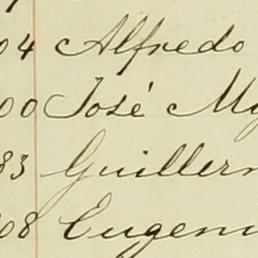 04 Alfredo
00 José My
83 Guillerm
08 Eugeni